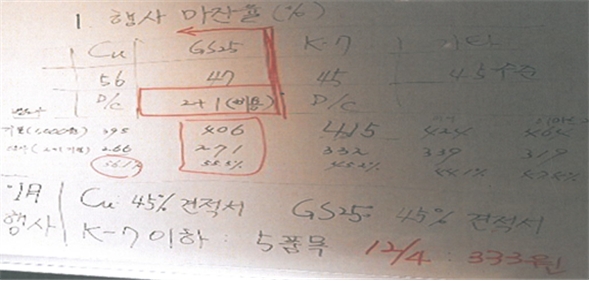 1 행사 마진율(%)
Cu GS25 K-7 기타
56 47 45 45수준
D/C 2+1(비용) D/C
395 406 415 424 464
266 271 332 339 319
55.5% 45.2% 44.1%
행사 Cu 45% 견적서 GS25 45% 견적서
K-7 이하 : 5품목 12/4 : 333원